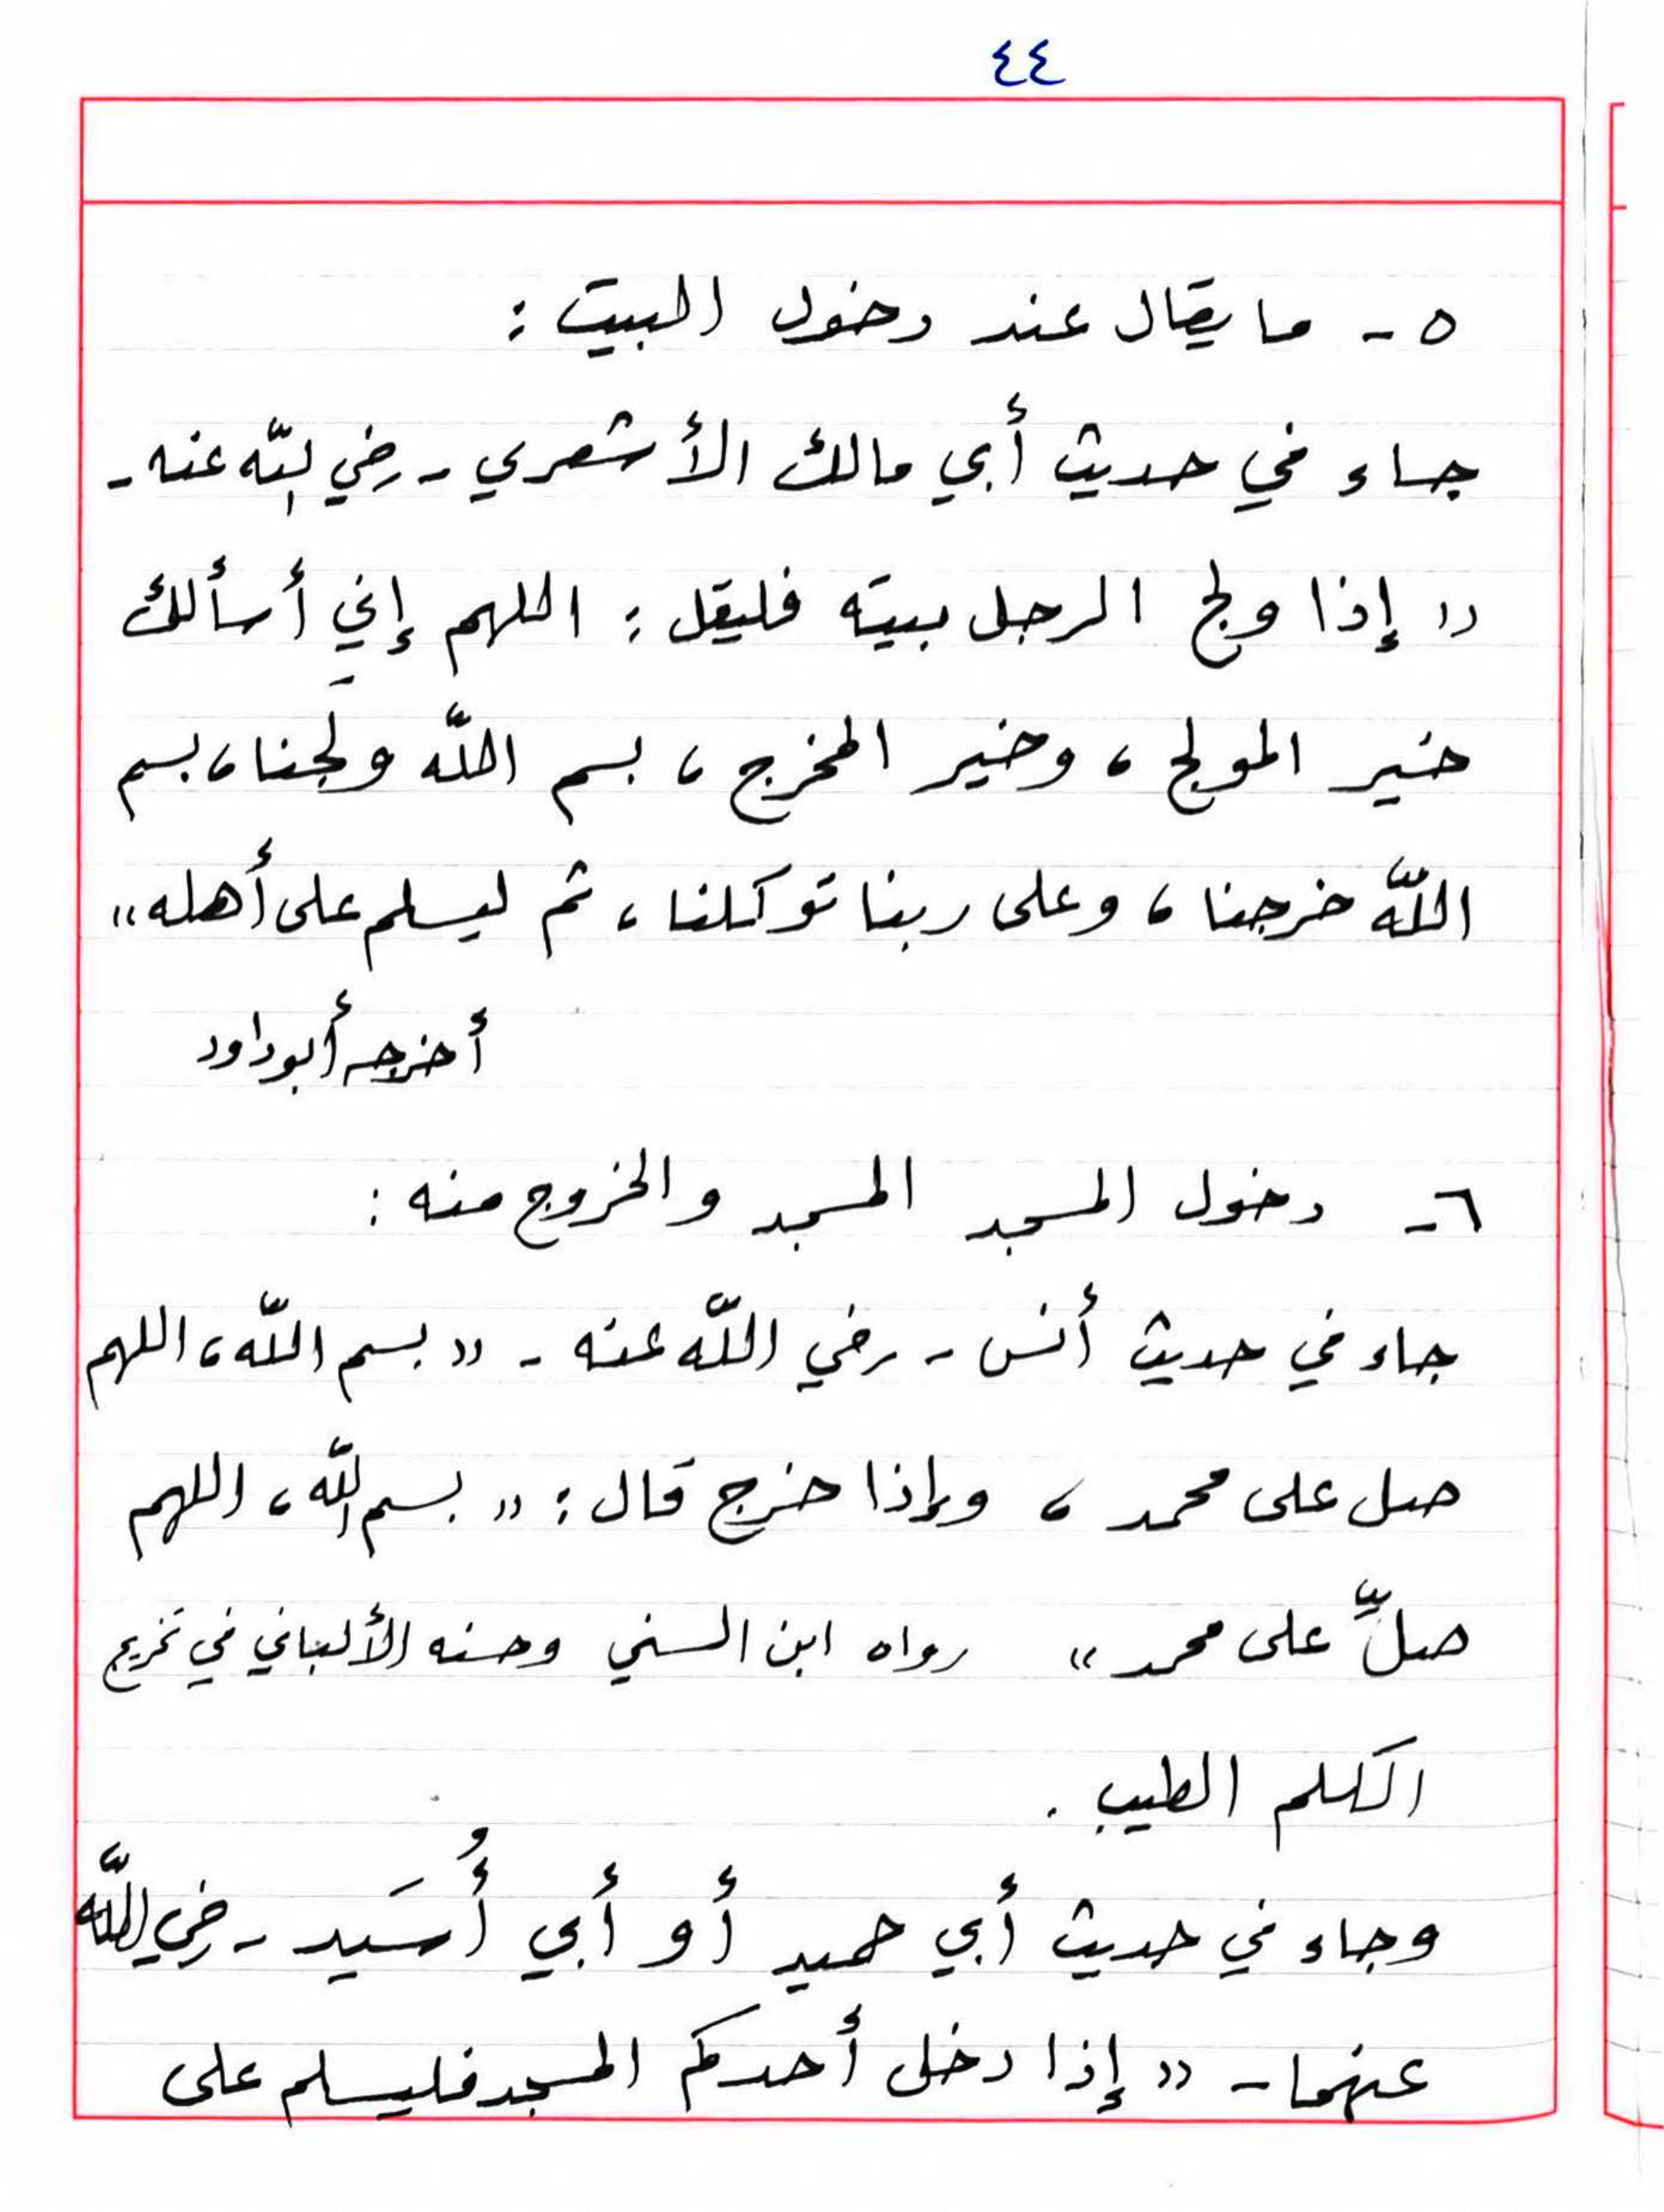 ٤٤
٥ - ما يقال عند دخول البيت :
جاء في حديث أبي مالك الأشعري - رضي الله عنه -
" إذا ولج الرجل بيته فليقل : اللهم إني أسألك
خير المولج ، وخير المخرج ، بسم الله ولجنا ، بسم
اللّه خرجنا ، وعلى ربنا توكلنا ، ثم ليسلم على أهله "
أخرجه أبو داود
٦ - دخول المسجد المسجد والخروج منه :
جاء في حديث أنس - رضي اللّه عنه - " بسم اللّه ، اللهم
صل على محمد ، وإذا خرج قال : " بسم اللّه ، اللهم
صلِّ على محمد " رواه ابن السني وحسنه الألباني في تخريج
الكلم الطيب .
وجاء في حديث أبي حميد أو أبي أُسَيد - رضي اللّه
عنهما - " إذا دخل أحدكم المسجد فليسلم على